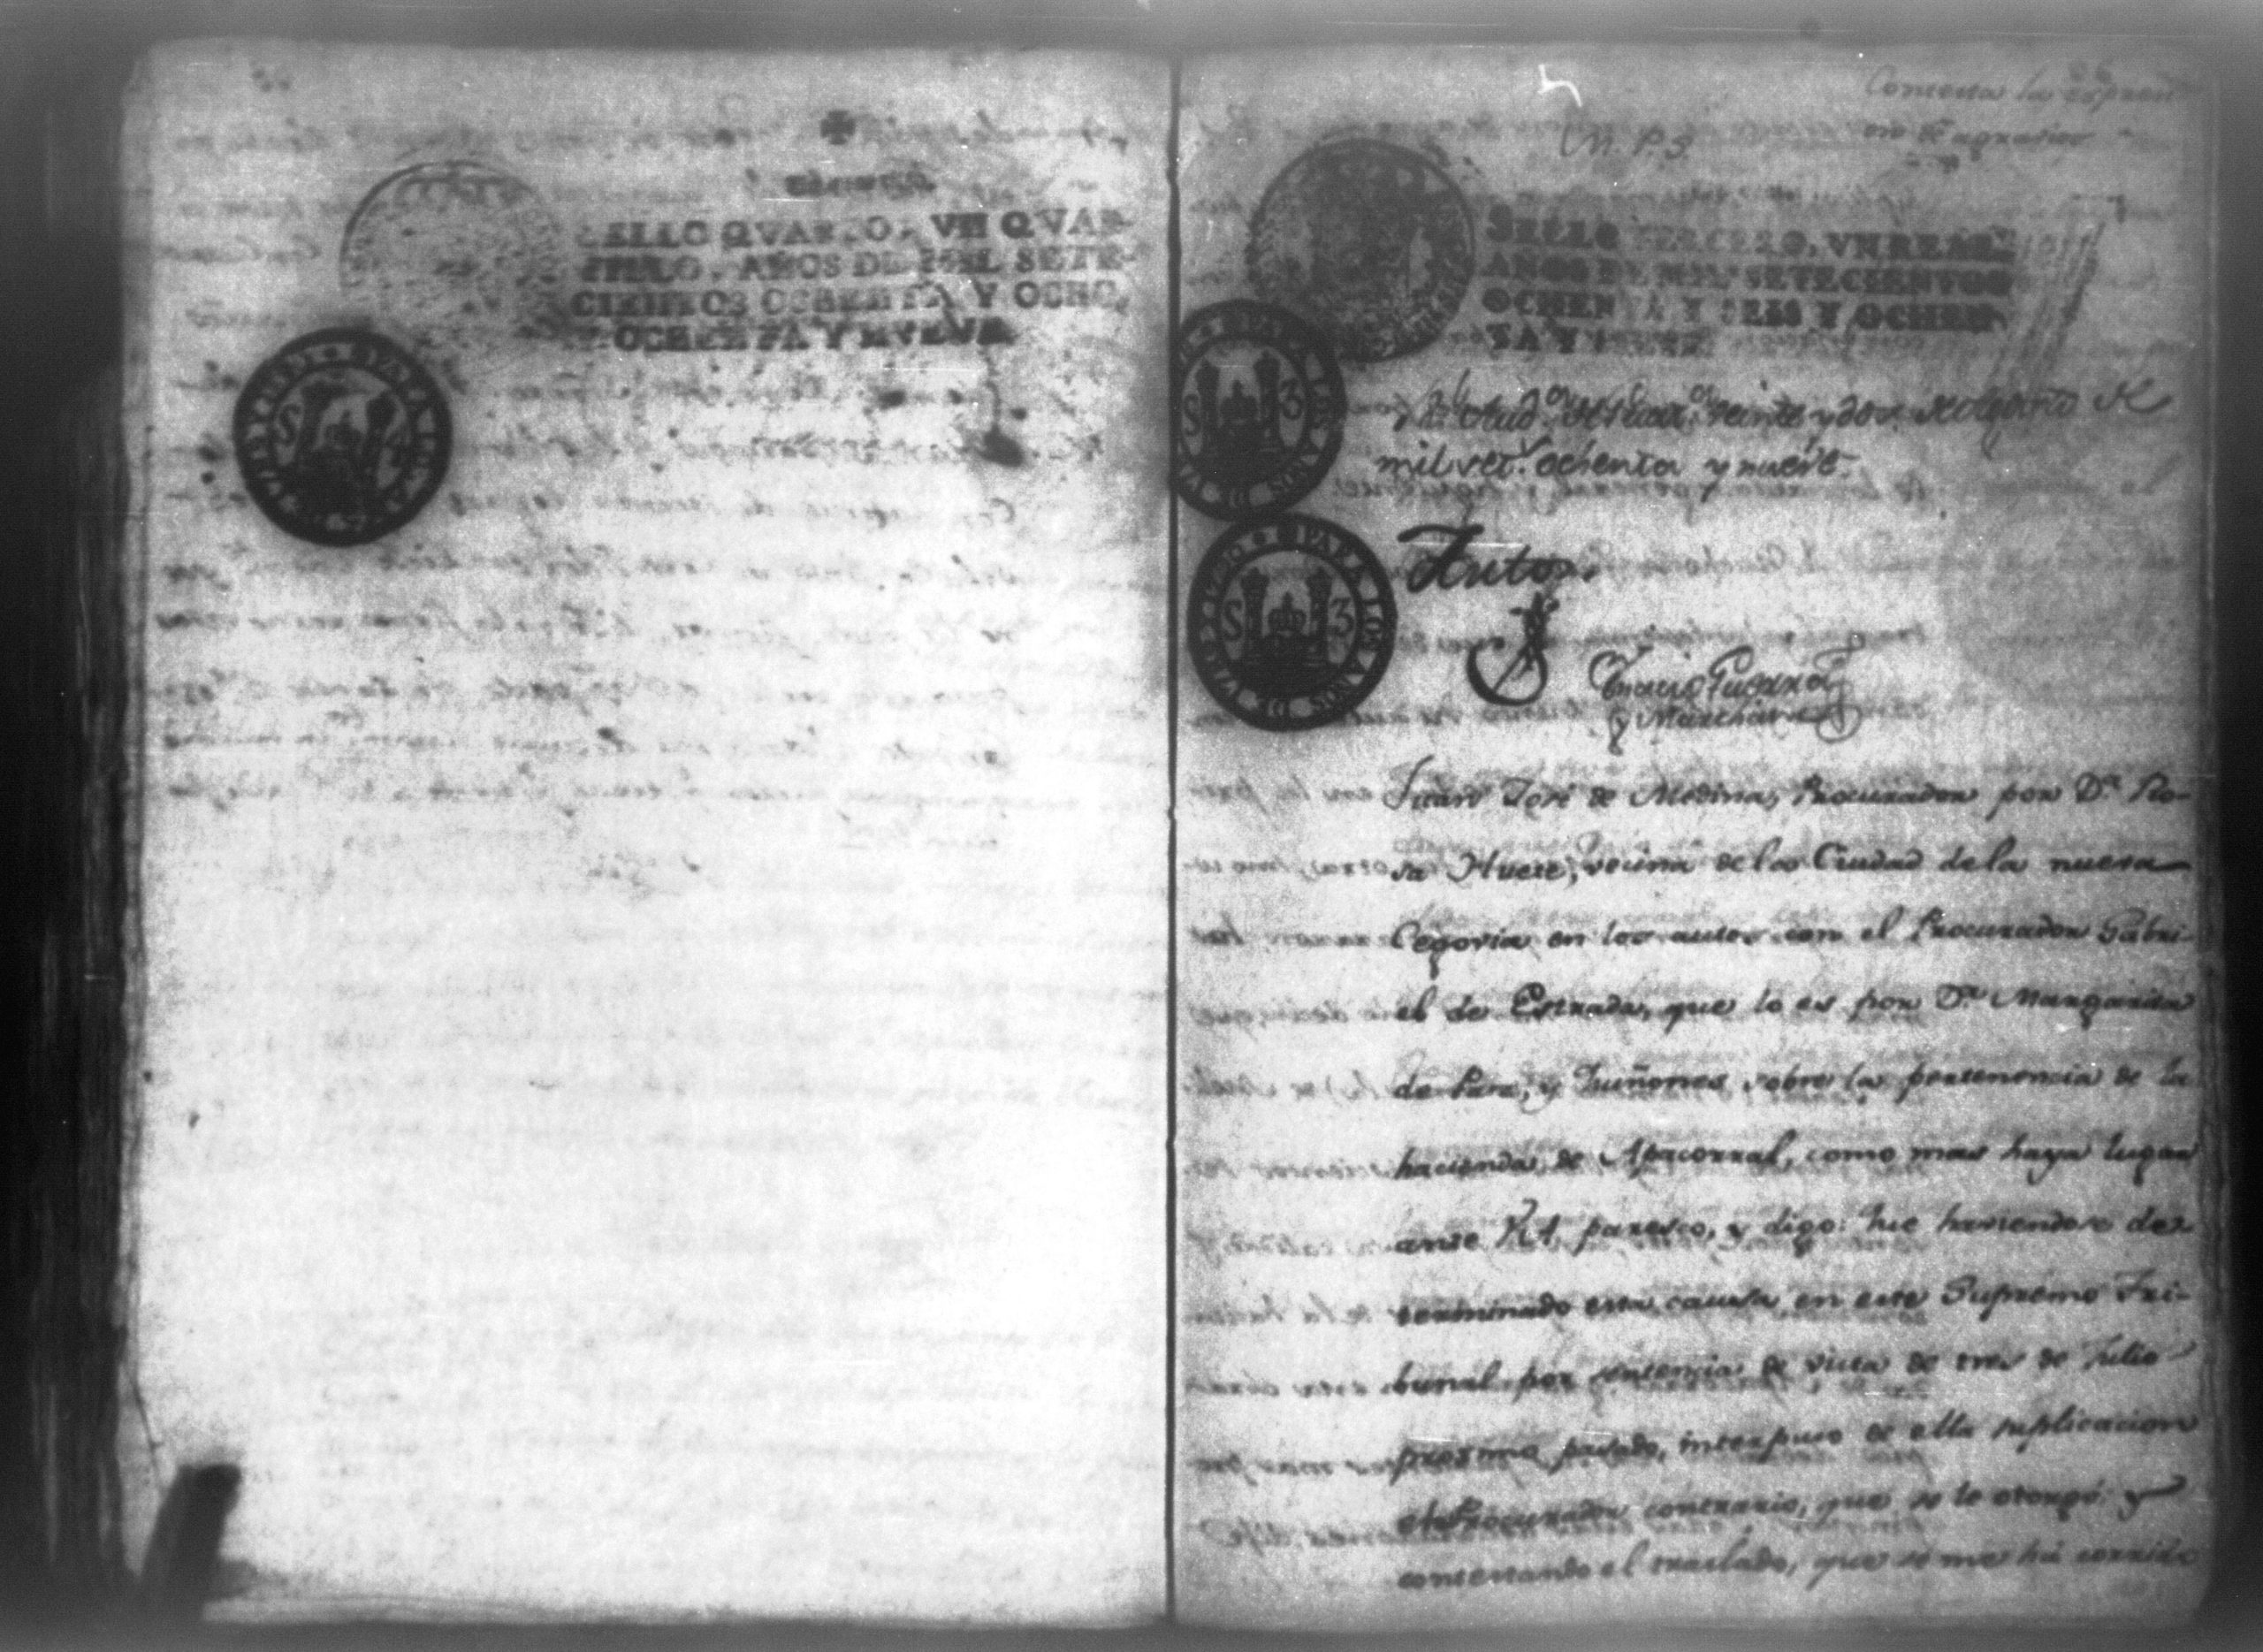 SELLO QVARTO, VN QVAR-
TILLO, AÑOS DE MIL SETE-
CIENTOS OCHENTA Y OCHO,
Y OCHENTA Y NVEVE
PARA LOS AÑOS DE
S 4
Contesta la expresi
on de agravios
M. P. S.
SELLO TERCERO, VN REAL
AÑOS DE MIL SETECIENTOS
OCHENTA Y SEIS Y OCHEN
TA Y SIETE
PARA LOS AÑOS DE
S 3
veinte y dos de Agosto de
mil set.s ochenta y nueve.
PARA LOS AÑOS DE
S 3
Autos.
y Marchan
Juan José de Medina, Procurador por D.a Ro-
sa Huete, vecina de la Ciudad de la nueva
Cegovia en los autos con el Procurador Gabri-
el de Estrada, que lo es por D.a Margarita
de Lara, y Quiñones sobre la pertenencia de la
hacienda de Apacorral, como mas haya lugar
ante V.A. paresco, y digo: Que haviendose de-
terminado esta causa en este Supremo Tri-
bunal por sentencia de vista de tres de Julio
proximo pasado, interpuso de ella suplicacion
el Procurador contrario, que se le otorgó: y
contestando el traslado, que se me há corrido